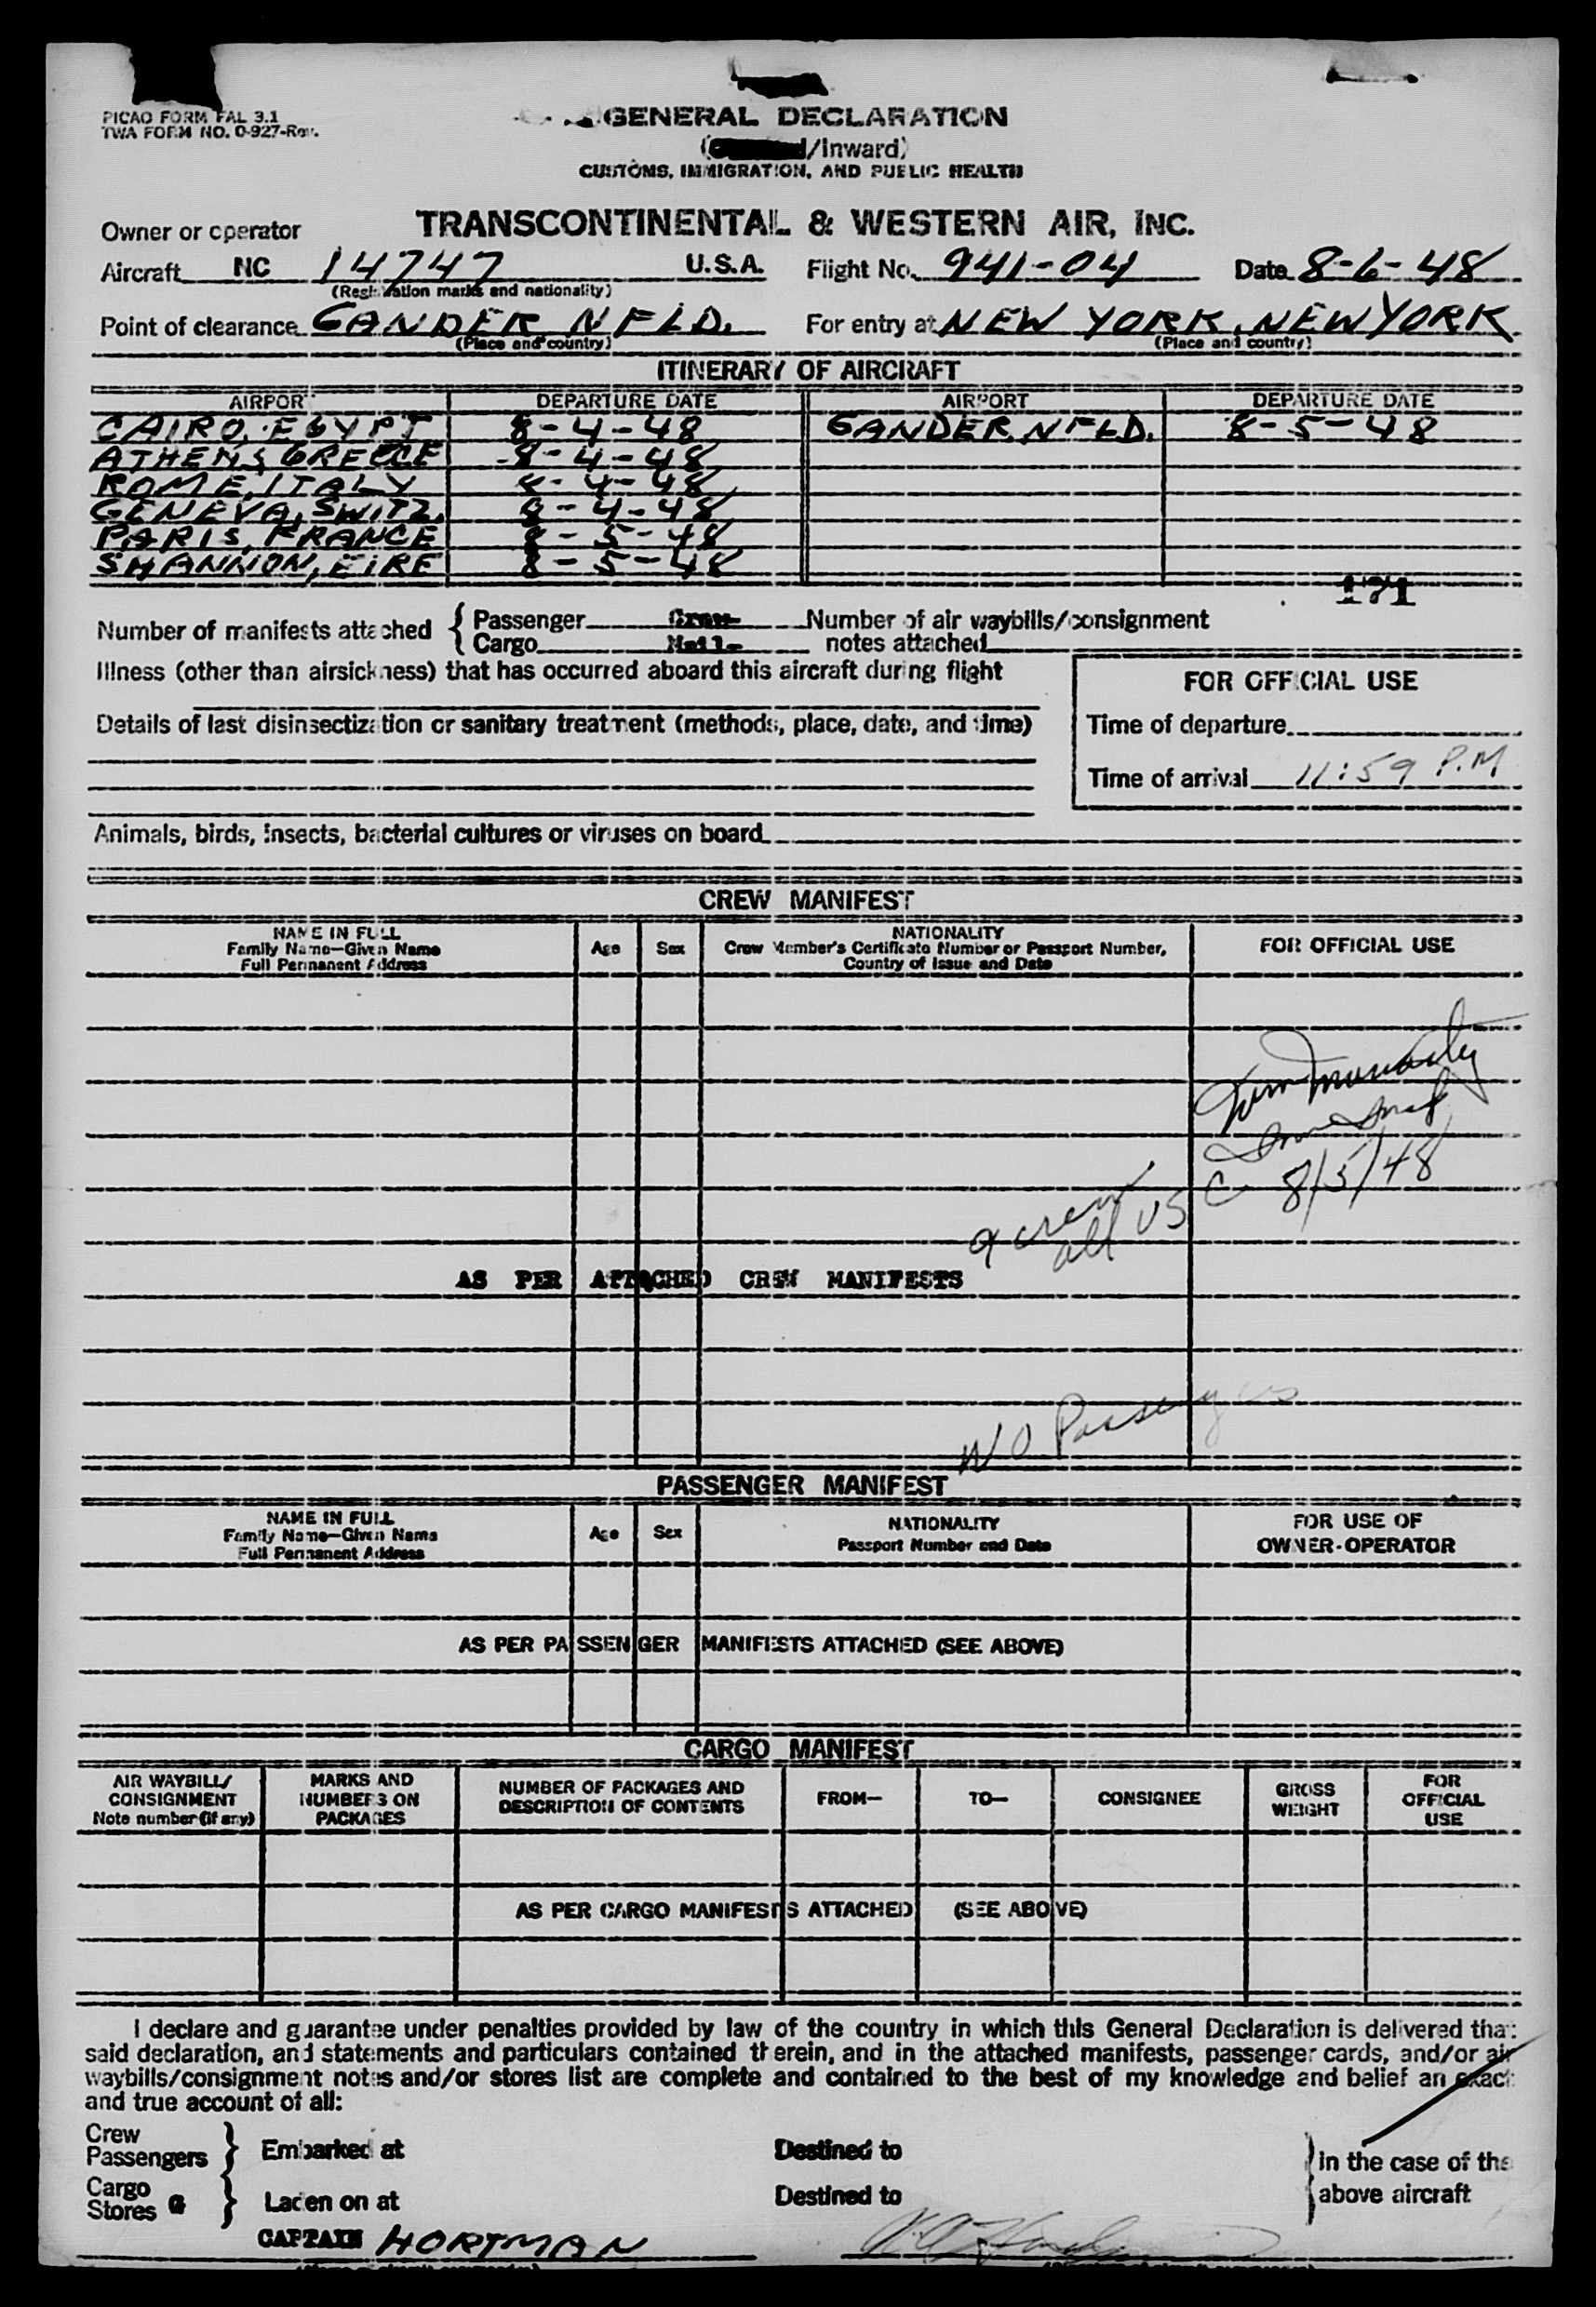 PICAO FORM FAL 3.1
TWA FORM NO. 0-927-Rev.
GENERAL DECLARATION
(/Inward)
CUSTOMS, IMMIGRATION, AND PUBLIC HEALTH
Owner or operator TRANSCONTINENTAL & WESTERN AIR, INC.
Aircraft NC 14747 U.S.A. Flight No. 941-04 Date 8-6-48
(Registration marks and nationality)
Point of clearance GANDER NFLD. For entry at NEW YORK, NEW YORK
(Place and country) (Place and country)
ITINERARY OF AIRCRAFT
AIRPORT DEPARTURE DATE AIRPORT DEPARTURE DATE
CAIRO, EGYPT 8-4-48 GANDER NFLD. 8-5-48
ATHENS, GREECE 8-4-48
ROME, ITALY 8-4-48
GENEVA, SWITZ. 8-4-48
PARIS, FRANCE 8-5-48
SHANNON, EIRE 8-5-48
171
Number of manifests attached { Passenger Crew Number of air waybills/consignment
Cargo Mail notes attached
Illness (other than airsickness) that has occurred aboard this aircraft during flight
FOR OFFICIAL USE
Details of last disinsectization or sanitary treatment (methods, place, date, and time)
Time of departure
Time of arrival 11:59 P.M
Animals, birds, insects, bacterial cultures or viruses on board
CREW MANIFEST
NAME IN FULL
Family Name—Given Name
Full Permanent Address
Age Sex
NATIONALITY
Crew Member's Certificate Number or Passport Number,
Country of Issue and Date
FOR OFFICIAL USE
8/5/48
9 crew
all USC
AS PER ATTACHED CREW MANIFESTS
NO Passengers
PASSENGER MANIFEST
NAME IN FULL
Family Name—Given Name
Full Permanent Address
Age Sex
NATIONALITY
Passport Number and Date
FOR USE OF
OWNER-OPERATOR
AS PER PASSENGER MANIFESTS ATTACHED (SEE ABOVE)
CARGO MANIFEST
AIR WAYBILL/
CONSIGNMENT
Note number (if any)
MARKS AND
NUMBERS ON
PACKAGES
NUMBER OF PACKAGES AND
DESCRIPTION OF CONTENTS
FROM— TO— CONSIGNEE
GROSS
WEIGHT
FOR
OFFICIAL
USE
AS PER CARGO MANIFESTS ATTACHED (SEE ABOVE)
I declare and guarantee under penalties provided by law of the country in which this General Declaration is delivered that
said declaration, and statements and particulars contained therein, and in the attached manifests, passenger cards, and/or air
waybills/consignment notes and/or stores list are complete and contained to the best of my knowledge and belief an exact
and true account of all:
Crew
Passengers } Embarked at Destined to
Cargo
Stores } Laden on at Destined to
} in the case of the
above aircraft
CAPTAIN HORTMAN